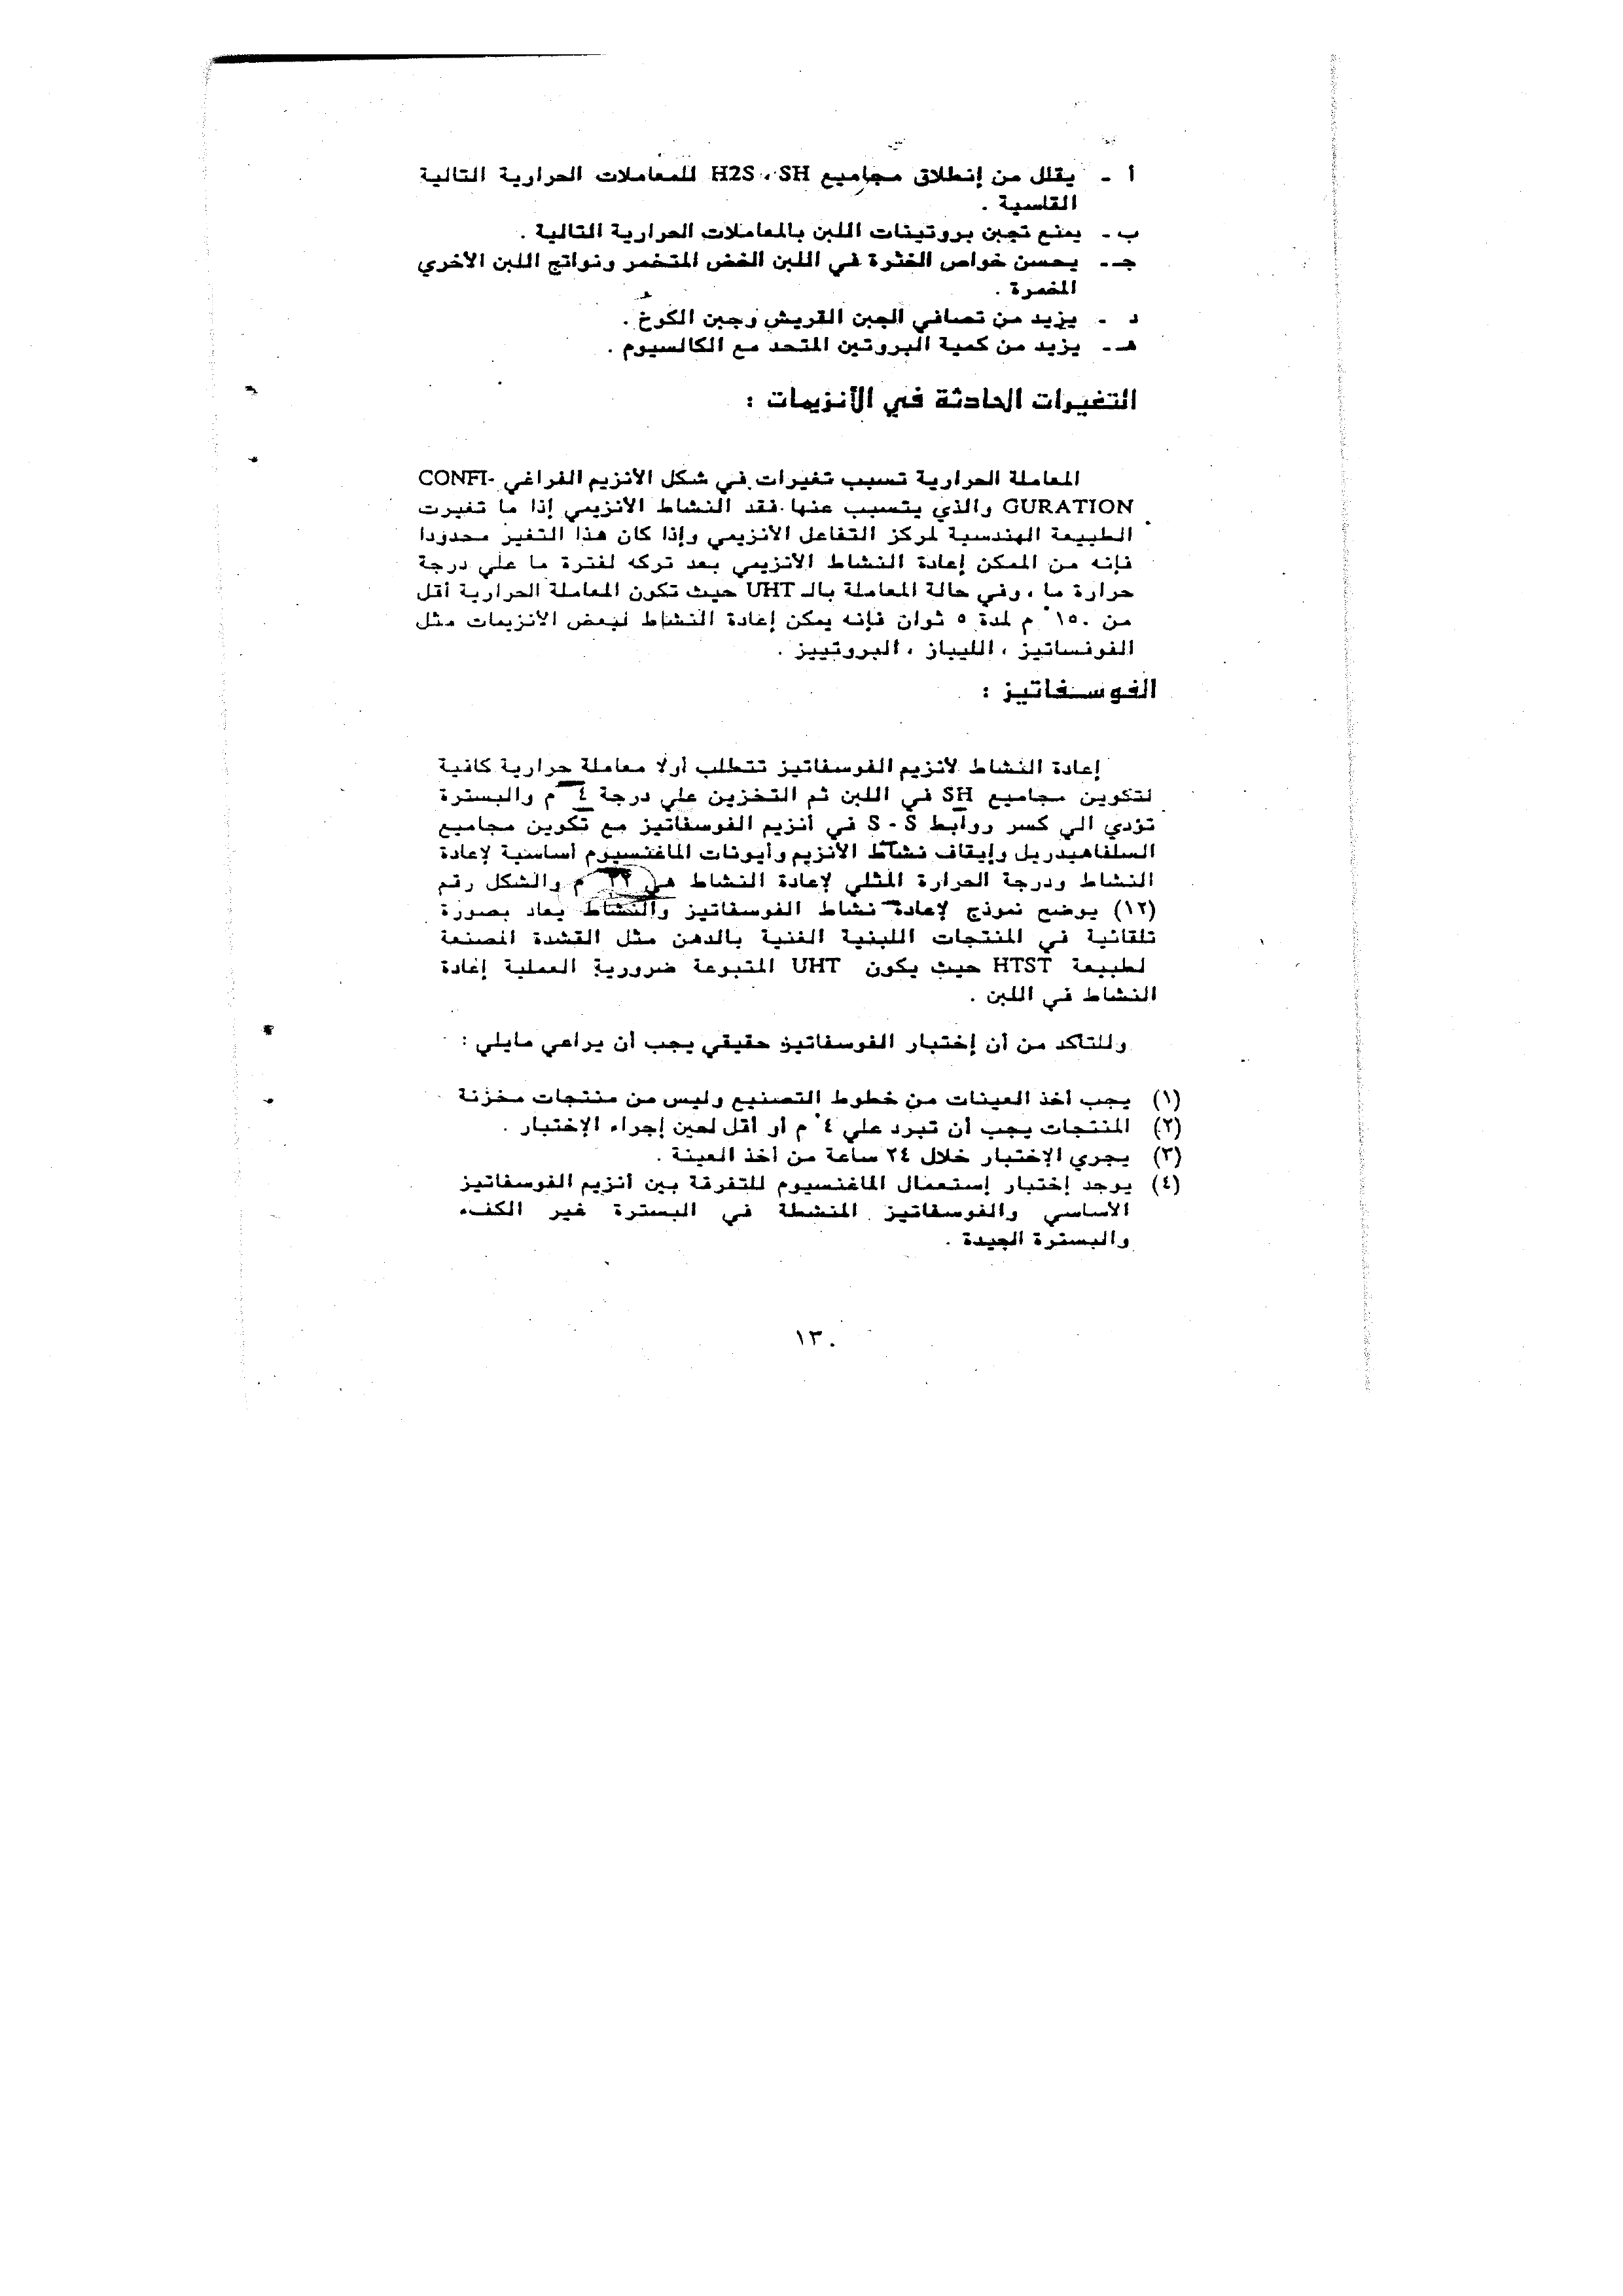 أ - يقلل من إنطلاق مجاميع H2S ، SH للمعاملات الحرارية التالية
القاسية .
ب - يمنع تجبن بروتينات اللبن بالمعاملات الحرارية التالية .
جـ - يحسن خواص الخثرة في اللبن الخض المتخمر ونواتج اللبن الأخري
المخمرة .
د - يزيد من تصافي الجبن القريش وجبن الكرخ .
هـ - يزيد من كمية البروتين المتحد مع الكالسيوم .
التغيرات الحادثة في الأنزيمات :
المعاملة الحرارية تسبب تغيرات في شكل الأنزيم الفراغي CONFI-
GURATION والذي يتسبب عنها فقد النشاط الأنزيمي إذا ما تغيرت
الطبيعة الهندسية لمركز التفاعل الأنزيمي وإذا كان هذا التغير محدودا
فإنه من الممكن إعادة النشاط الأنزيمي بعد تركه لفترة ما علي درجة
حرارة ما ، وفي حالة المعاملة بالـ UHT حيث تكون المعاملة الحرارية أقل
من ١٥٠ ْ م لمدة ٥ ثوان فإنه يمكن إعادة النشاط لبعض الأنزيمات مثل
الفوسفاتيز ، الليباز ، البروتييز .
الفوسفاتيز :
إعادة النشاط لأنزيم الفوسفاتيز تتطلب أولا معاملة حرارية كافية
لتكوين مجاميع SH في اللبن ثم التخزين علي درجة ٤ ْ م والبسترة
تؤدي الي كسر روابط S - S في أنزيم الفوسفاتيز مع تكوين مجاميع
السلفاهيدريل وإيقاف نشاط الأنزيم وأيونات الماغنسيوم أساسية لإعادة
النشاط ودرجة الحرارة المثلي لإعادة النشاط هي م والشكل رقم
(١٢) يوضح نموذج لإعادة نشاط الفوسفاتيز والنشاط يعاد بصورة
تلقائية في المنتجات اللبنية الغنية بالدهن مثل القشدة المصنعة
لطبيعة HTST حيث يكون UHT المتبوعة ضرورية العملية إعادة
النشاط في اللبن .
وللتأكد من أن إختبار الفوسفاتيز حقيقي يجب أن يراعي مايلي :
(١) يجب أخذ العينات من خطوط التصنيع وليس من منتجات مخزنة
(٢) المنتجات يجب أن تبرد علي ٤ ْ م أو أقل لحين إجراء الإختبار .
(٣) يجري الإختبار خلال ٢٤ ساعة من أخذ العينة .
(٤) يوجد إختبار إستعمال الماغنسيوم للتفرقة بين أنزيم الفوسفاتيز
الأساسي والفوسفاتيز المنشطة في البسترة غير الكفء
والبسترة الجيدة .
١٣٠